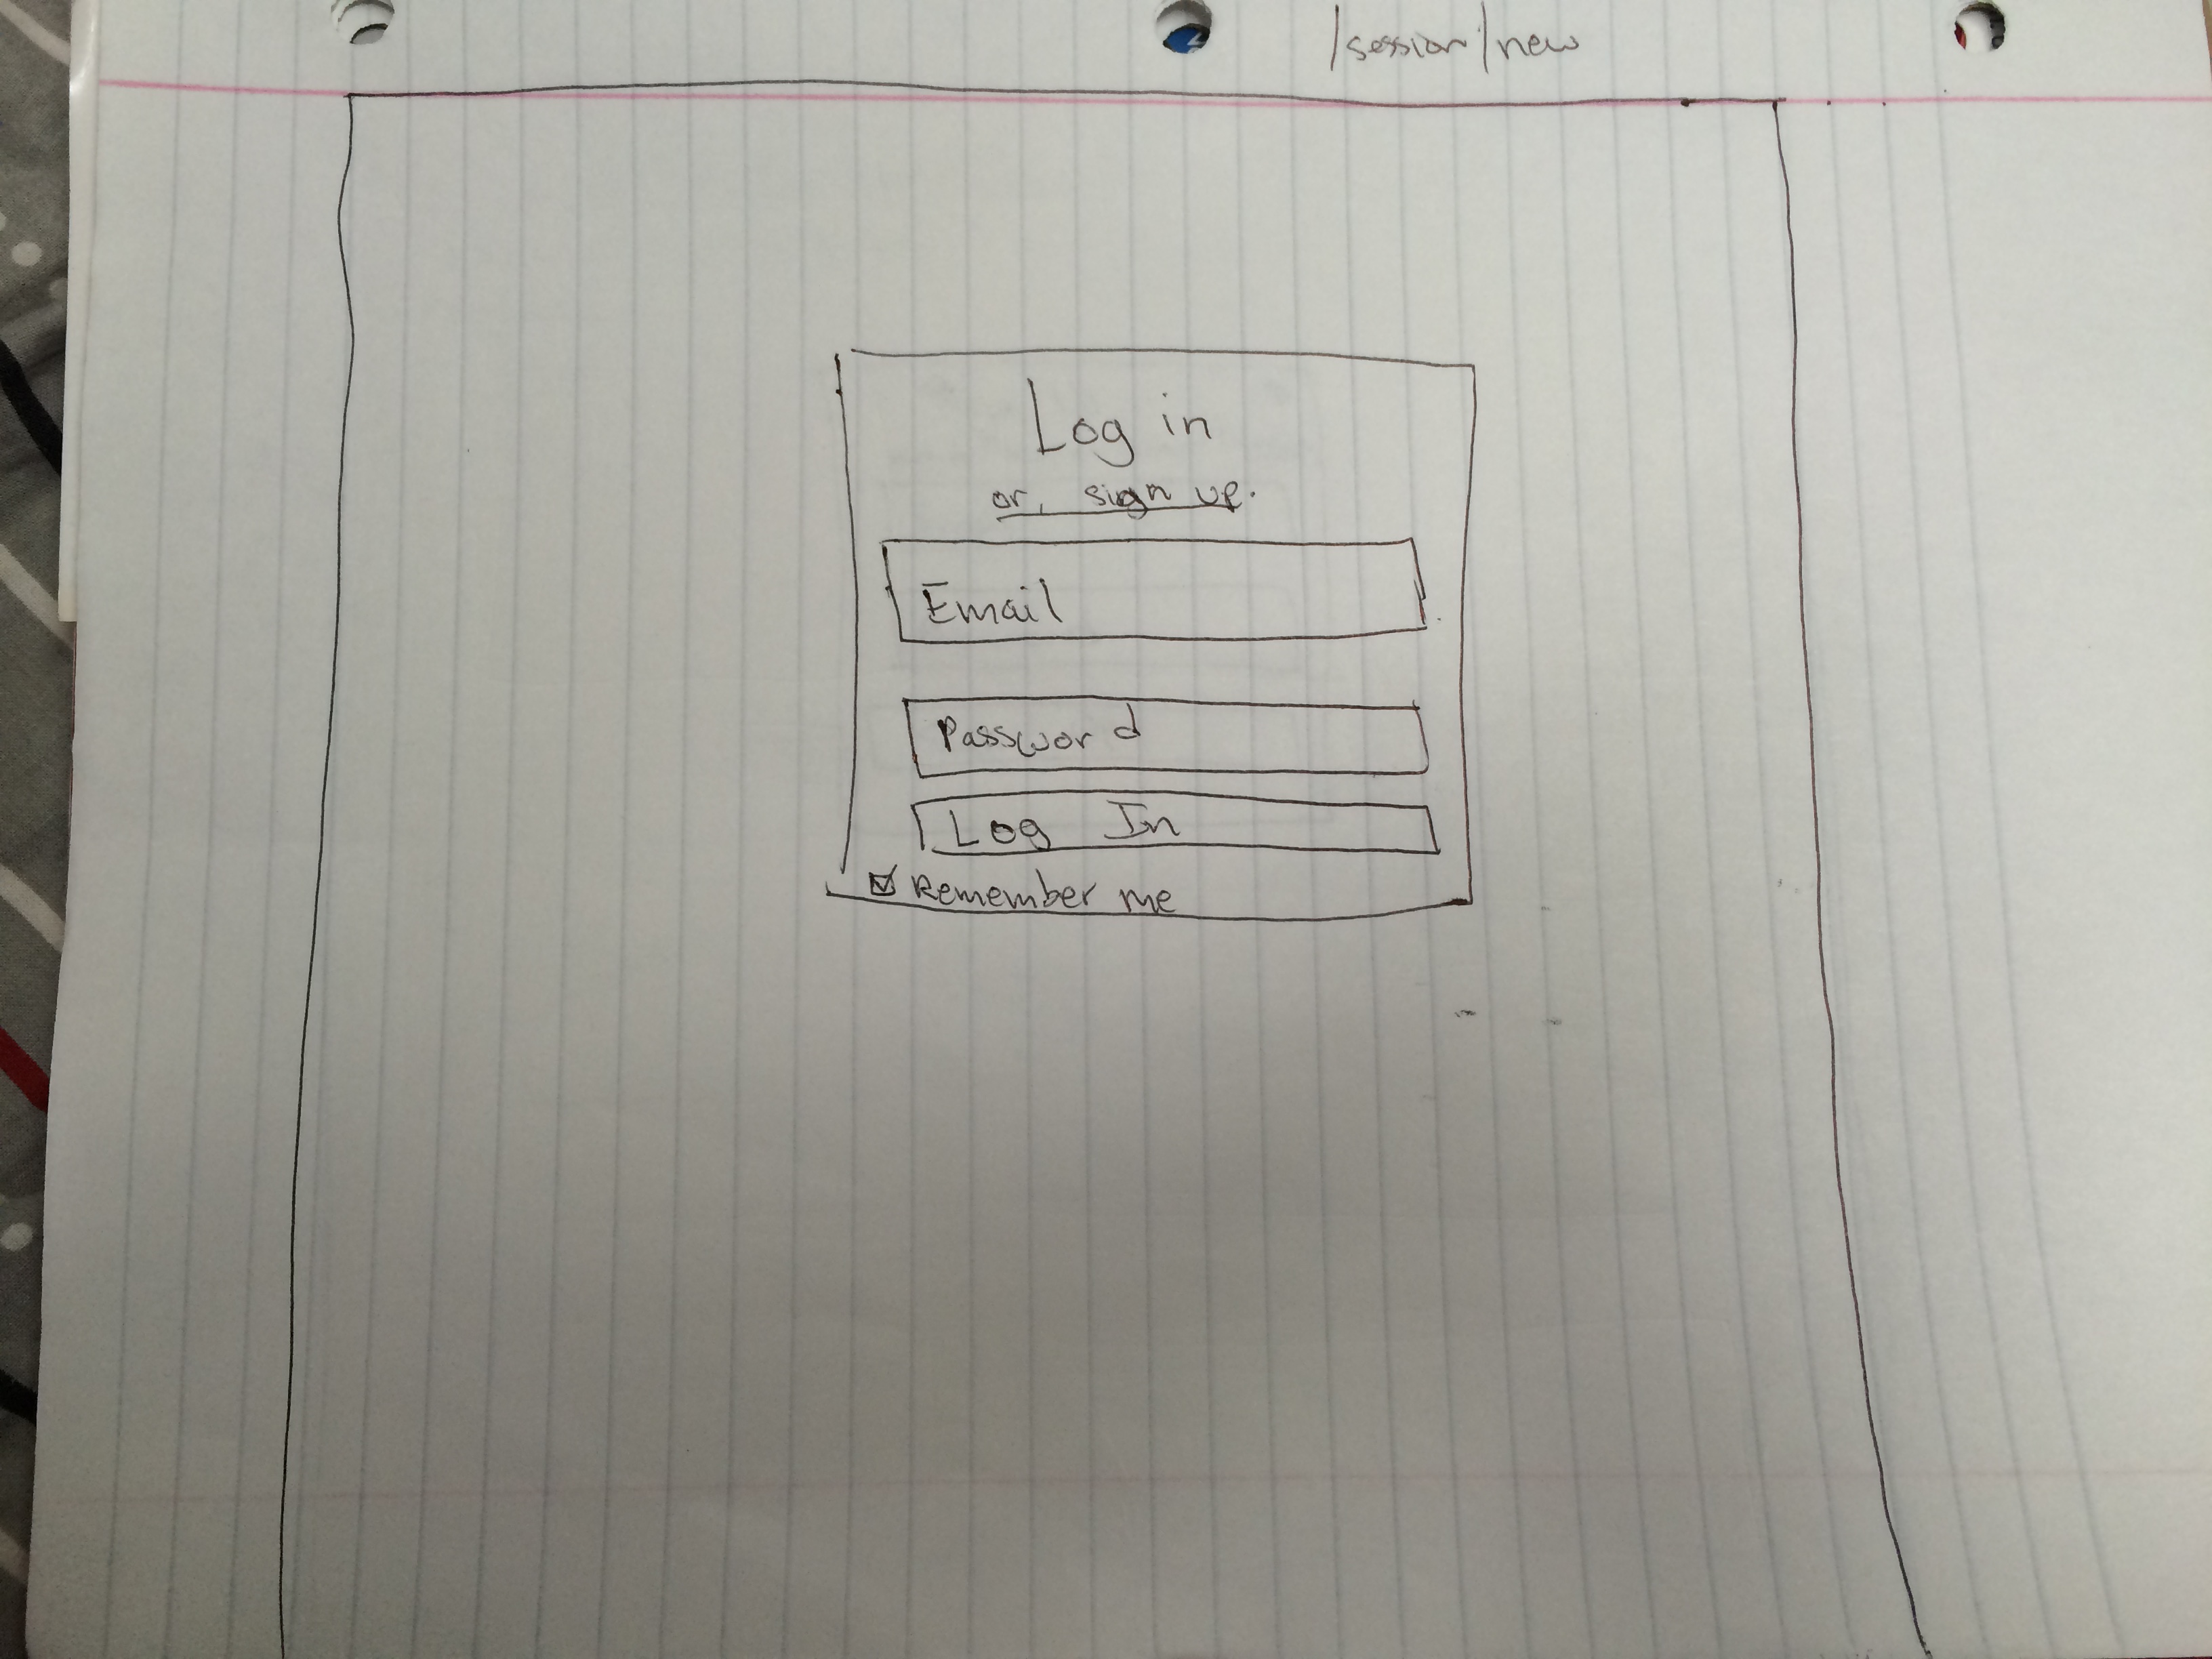 /session/new
Log in
or, sign up.
Email
Password
Log In
Remember me